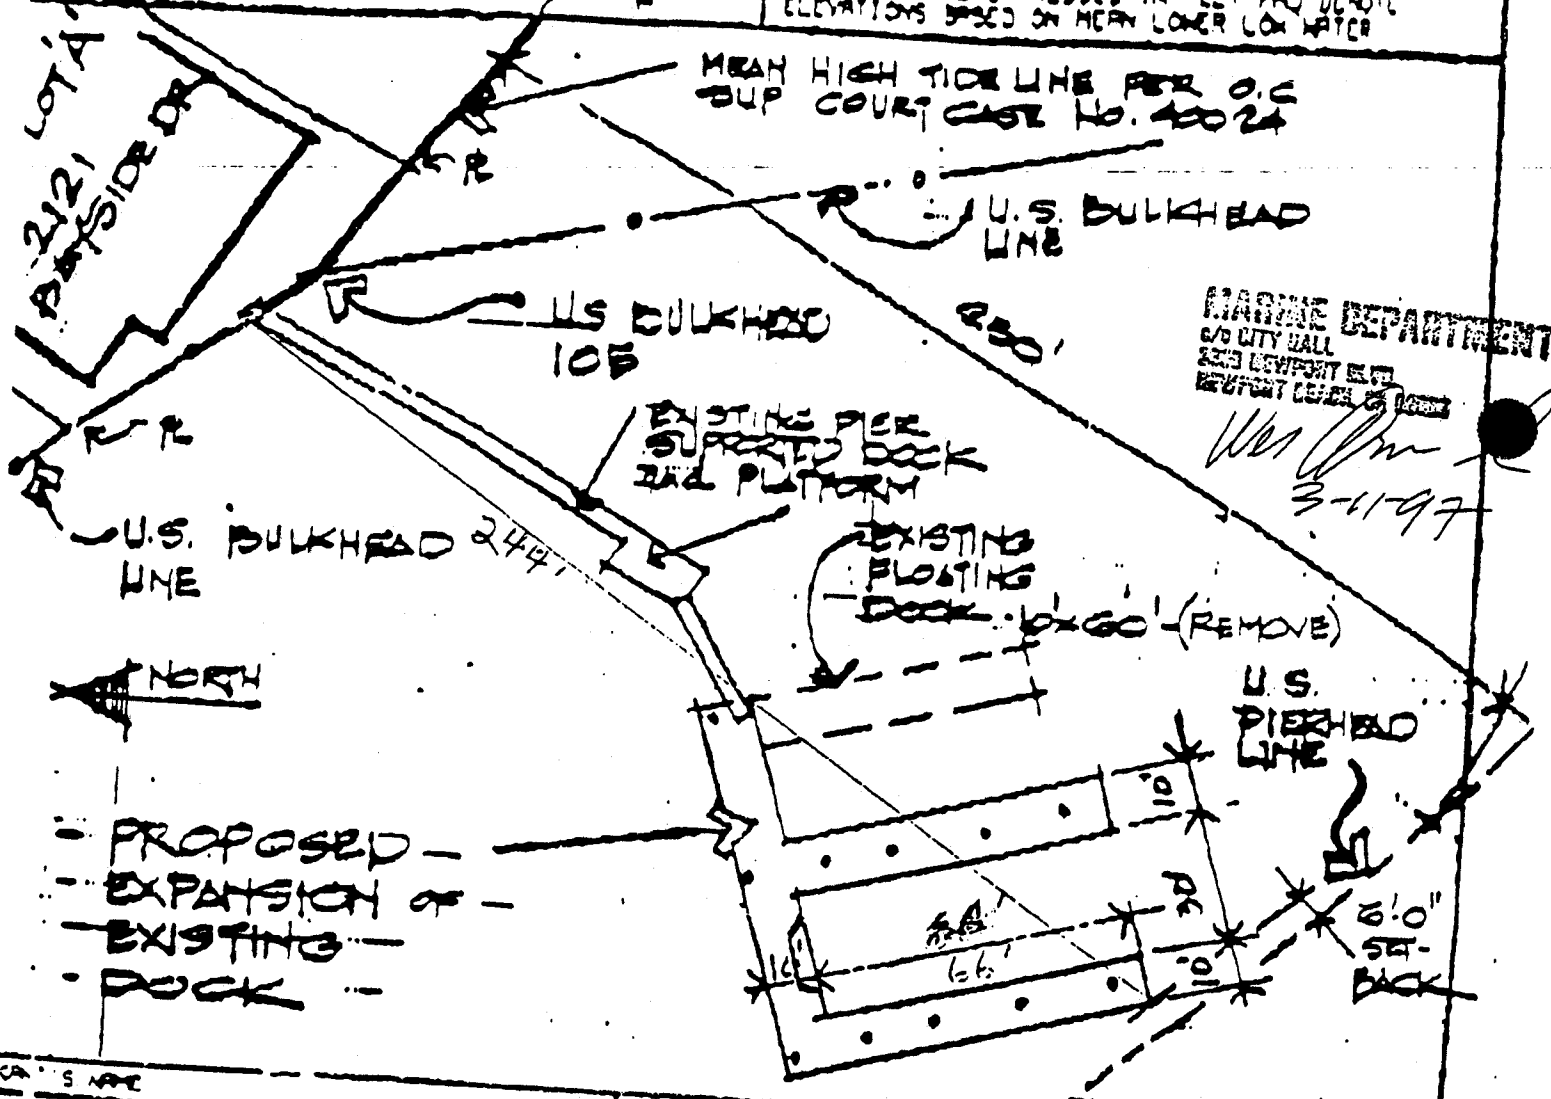 ELEVATIONS BASED ON MEAN LOWER LOW WATER
LOT A
2121
BAYSIDE DR
MEAN HIGH TIDE LINE PER O.C
SUP COURT CASE NO. 40024
PL
U.S. BULKHEAD
LINE
US BULKHEAD
105
230'
MARINE DEPARTMENT
C/O CITY HALL
NEWPORT BLVD.
NEWPORT BEACH, CA
Wes
3-11-97
EXISTING PIER
SUPPORTED DOCK
AND PLATFORM
PL
U.S. BULKHEAD
LINE
244'
EXISTING
FLOATING
DOCK 10'x60' (REMOVE)
NORTH
U.S.
PIERHEAD
LINE
10'
PROPOSED
EXPANSION OF
EXISTING
DOCK
66'
10'
SET-
BACK
'S NAME